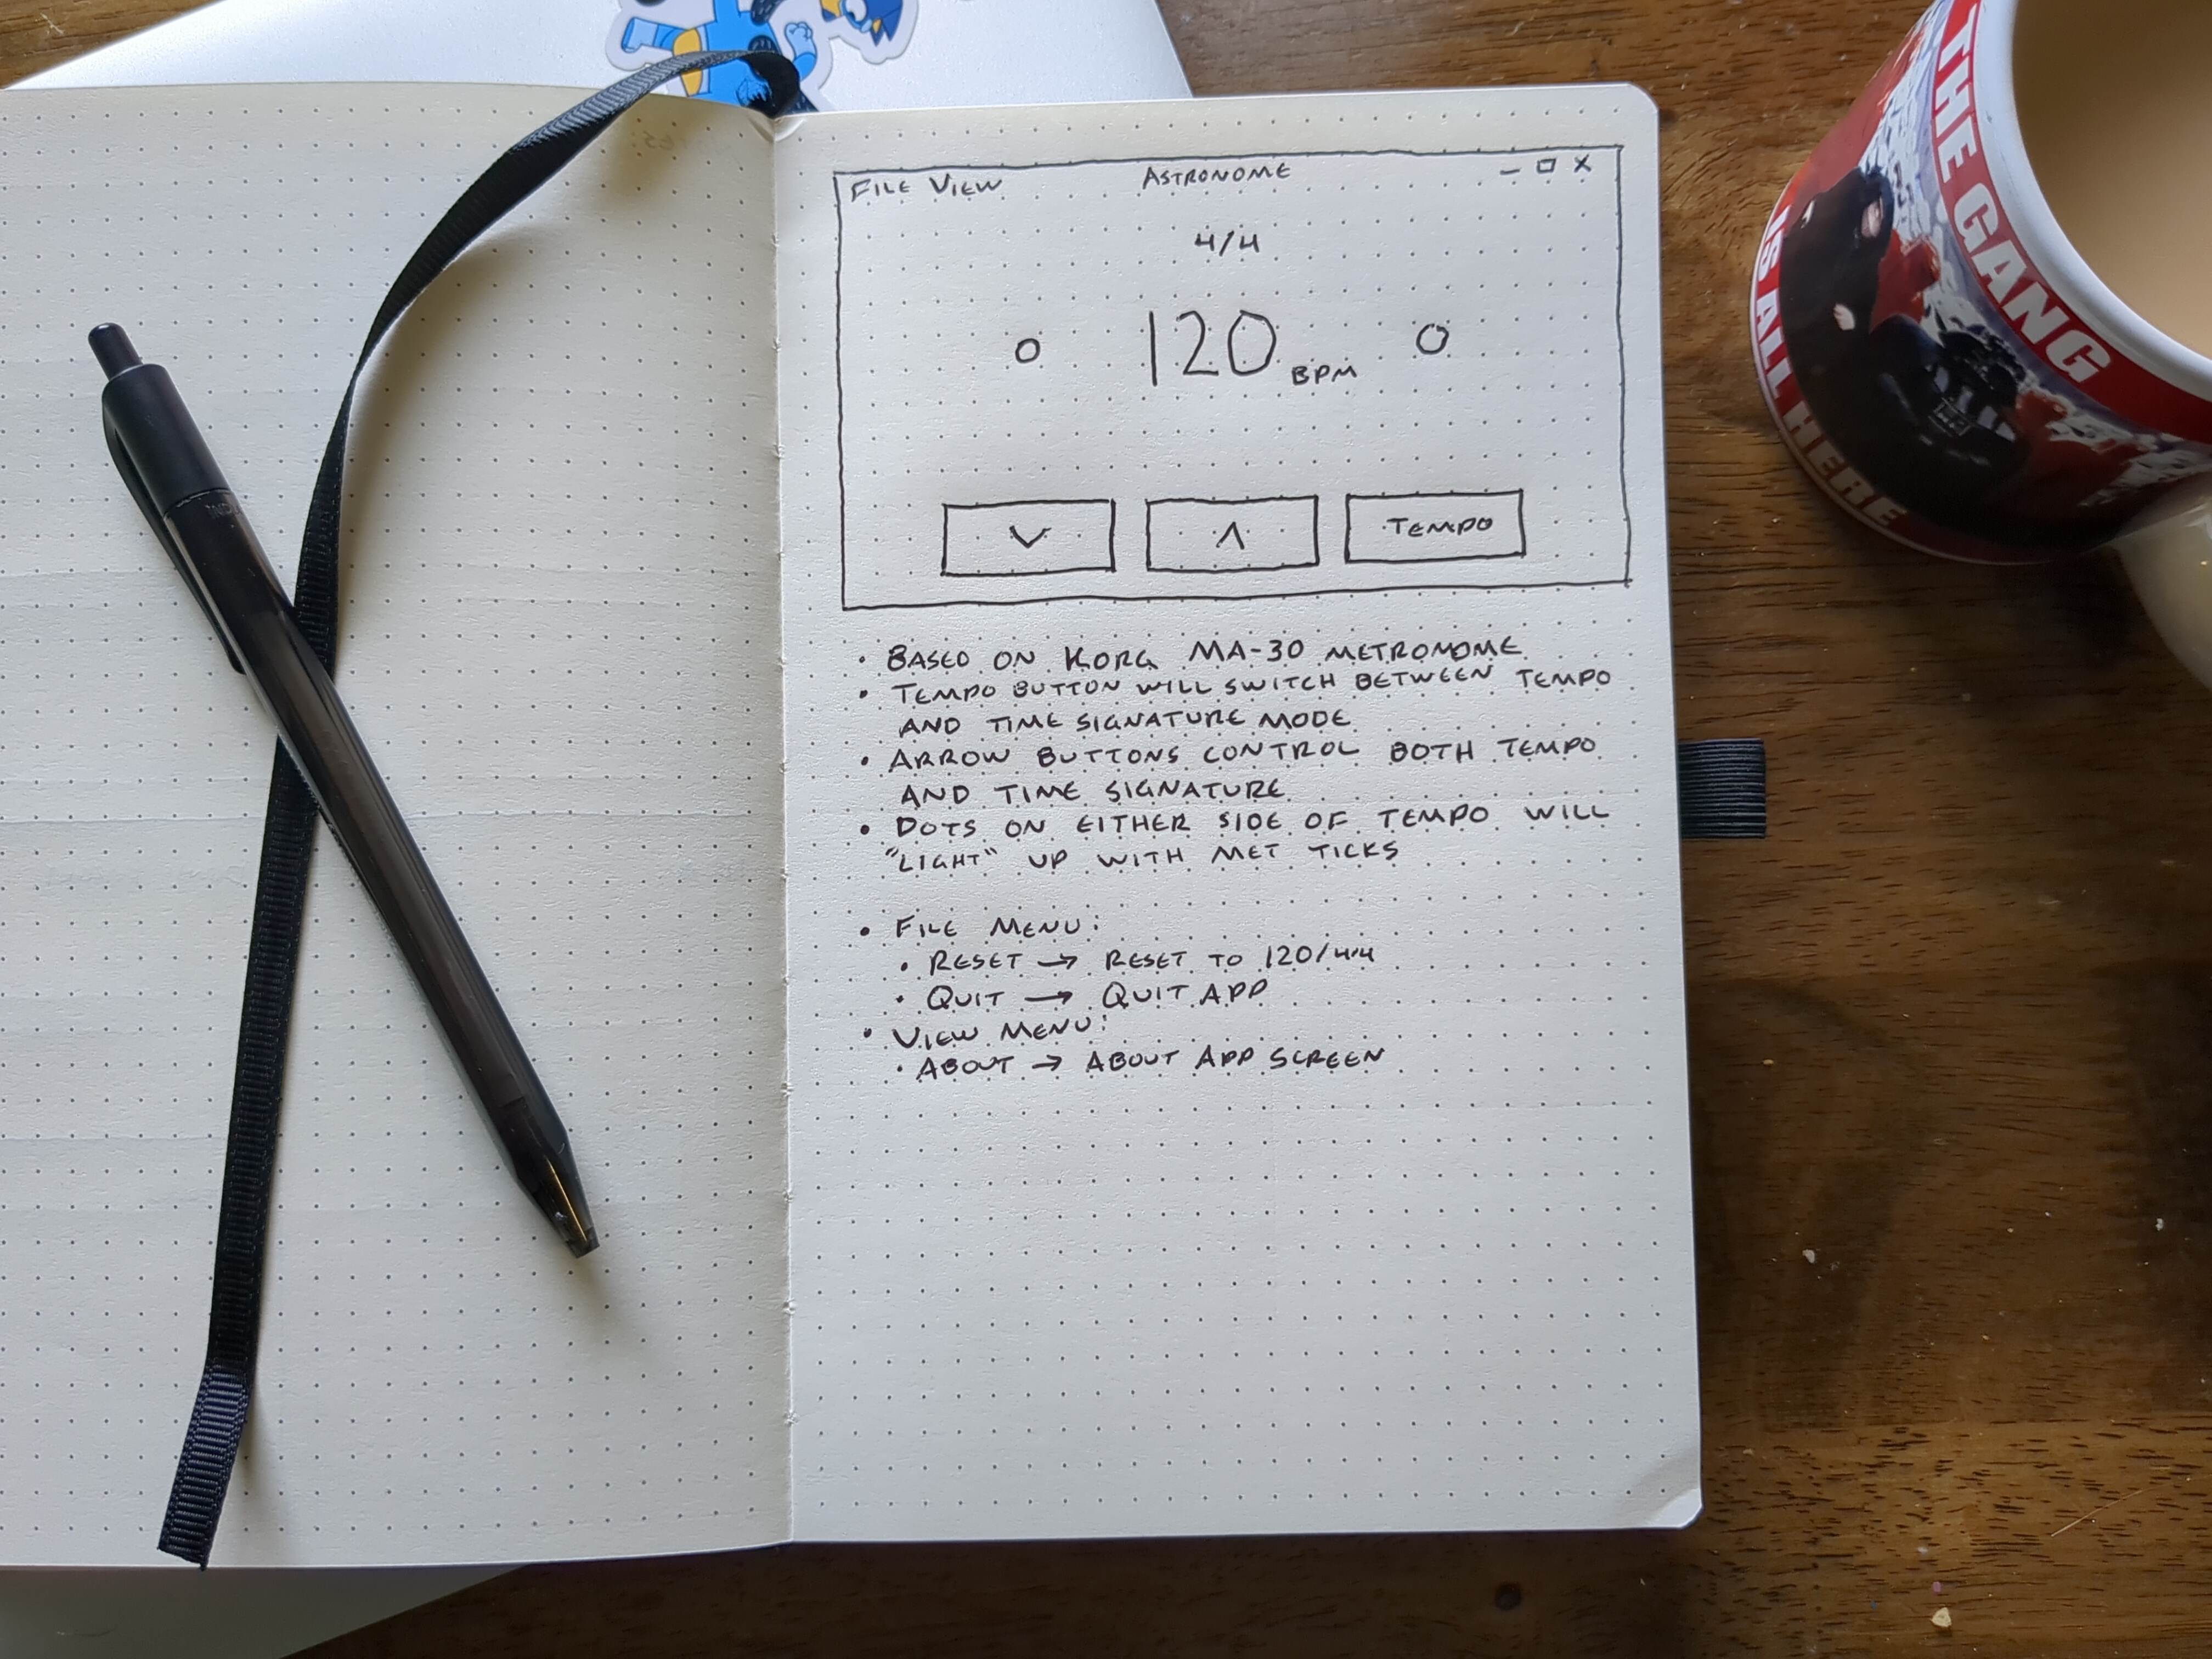 File View Astronome – □ X
4/4
120 BPM
∨ ∧ Tempo
• Based on Korg MA-30 metronome
• Tempo button will switch between tempo
and time signature mode
• Arrow buttons control both tempo
and time signature
• Dots on either side of tempo will
"light" up with met ticks
• File Menu:
• Reset → Reset to 120/4:4
• Quit → Quit app
• View Menu:
• About → About app screen
THE GANG
IS ALL HERE